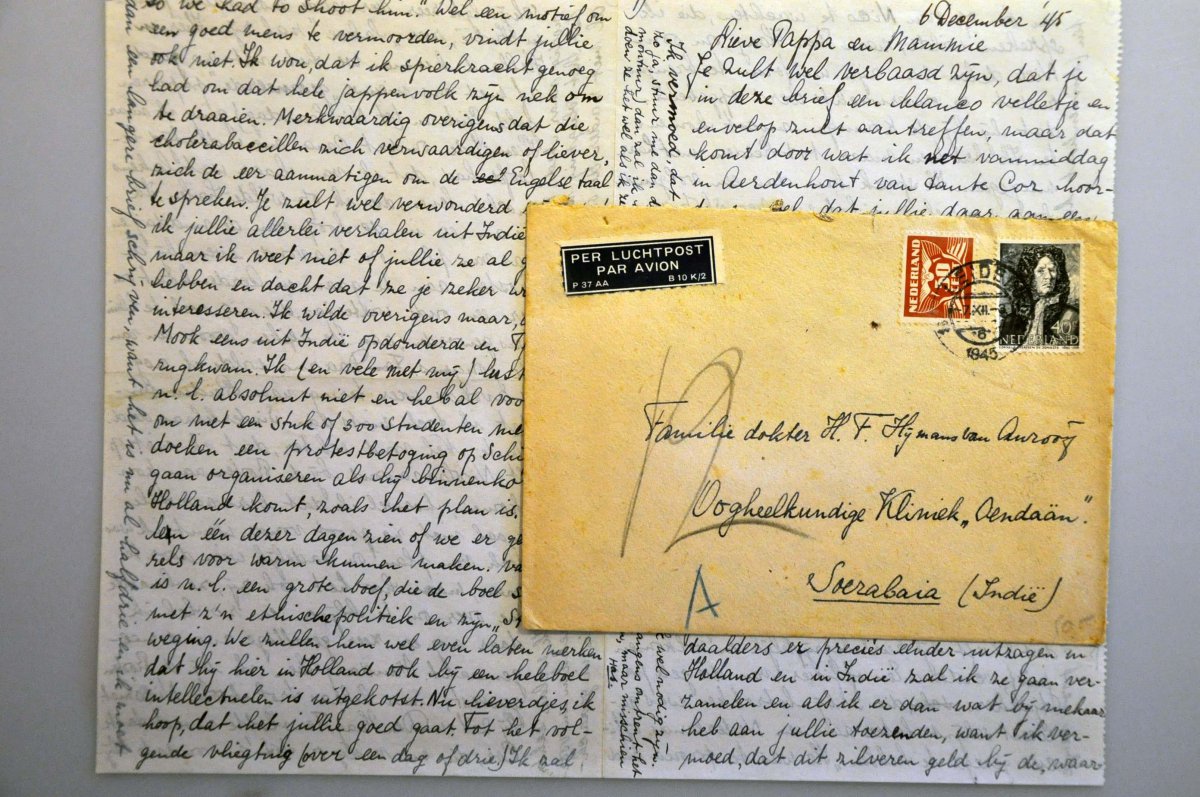 so we had to shoot him". Wel een motief om
een goed mens te vermoorden, vindt jullie
ook niet. Ik wou, dat ik spierkracht genoeg
had om dat hele jappenvolk zijn nek om
te draaien. Merkwaardig overigens dat die
cholerabaccillen zich verwaardigen of liever,
zich de eer aanmatigen om de Engelse taal
te spreken. Je zult wel verwonderd
ik jullie allerlei verhalen uit Indië
maar ik weet niet of jullie ze al
hebben en dacht dat ze je zeker
interesseren. Ik wilde overigens maar,
Mook eens uit Indië opdonderde en
rugkwam. Ik (en vele met mij) lust
n.l. absoluut niet en heb al
om met een stuk of 300 studenten
doeken een protestbetoging op
gaan organiseren als hij
Holland komt, zoals het plan is.
één dezer dagen zien of we er
zels voor warm kunnen maken.
is n.l. een grote boef, die de boel
met z'n ethischepolitiek en zijn
weging. We zullen hem wel even laten merken
dat hij hier in Holland ook bij een heleboel
intellectuelen is uitgekotst. Nu lieverdjes, ik
hoop, dat het jullie goed gaat. Tot het vol-
gende vliegtuig (over een dag of drie) Ik zal
dan een langere brief schrijven, want het is nu al half drie en ik moet
6 December '45
Lieve Pappa en Mammie
Je zult wel verbaasd zijn, dat je
in deze brief een blanco velletje en
envelop zult aantreffen, maar dat
komt door wat ik net vanmiddag
in Aerdenhout van tante Cor hoor-
dat jullie daar aan een
Ik vermoed, dat
PER LUCHTPOST
PAR AVION
P 37 AA B 10 K/2
NEDERLAND
10
40
NEDERLAND
XII
1945
12
Familie dokter H. F. Hijmans van Anrooij
Oogheelkundige Kliniek „Oendaän".
Soerabaia (Indië)
A
wel nodig zijn.
maar misschien
daalders er precies eender uitzagen in
Holland en in Indië zal ik ze gaan ver-
zamelen en als ik er dan wat bij mekaar
heb aan jullie toezenden, want ik ver-
moed, dat dit zilveren geld bij de, waar